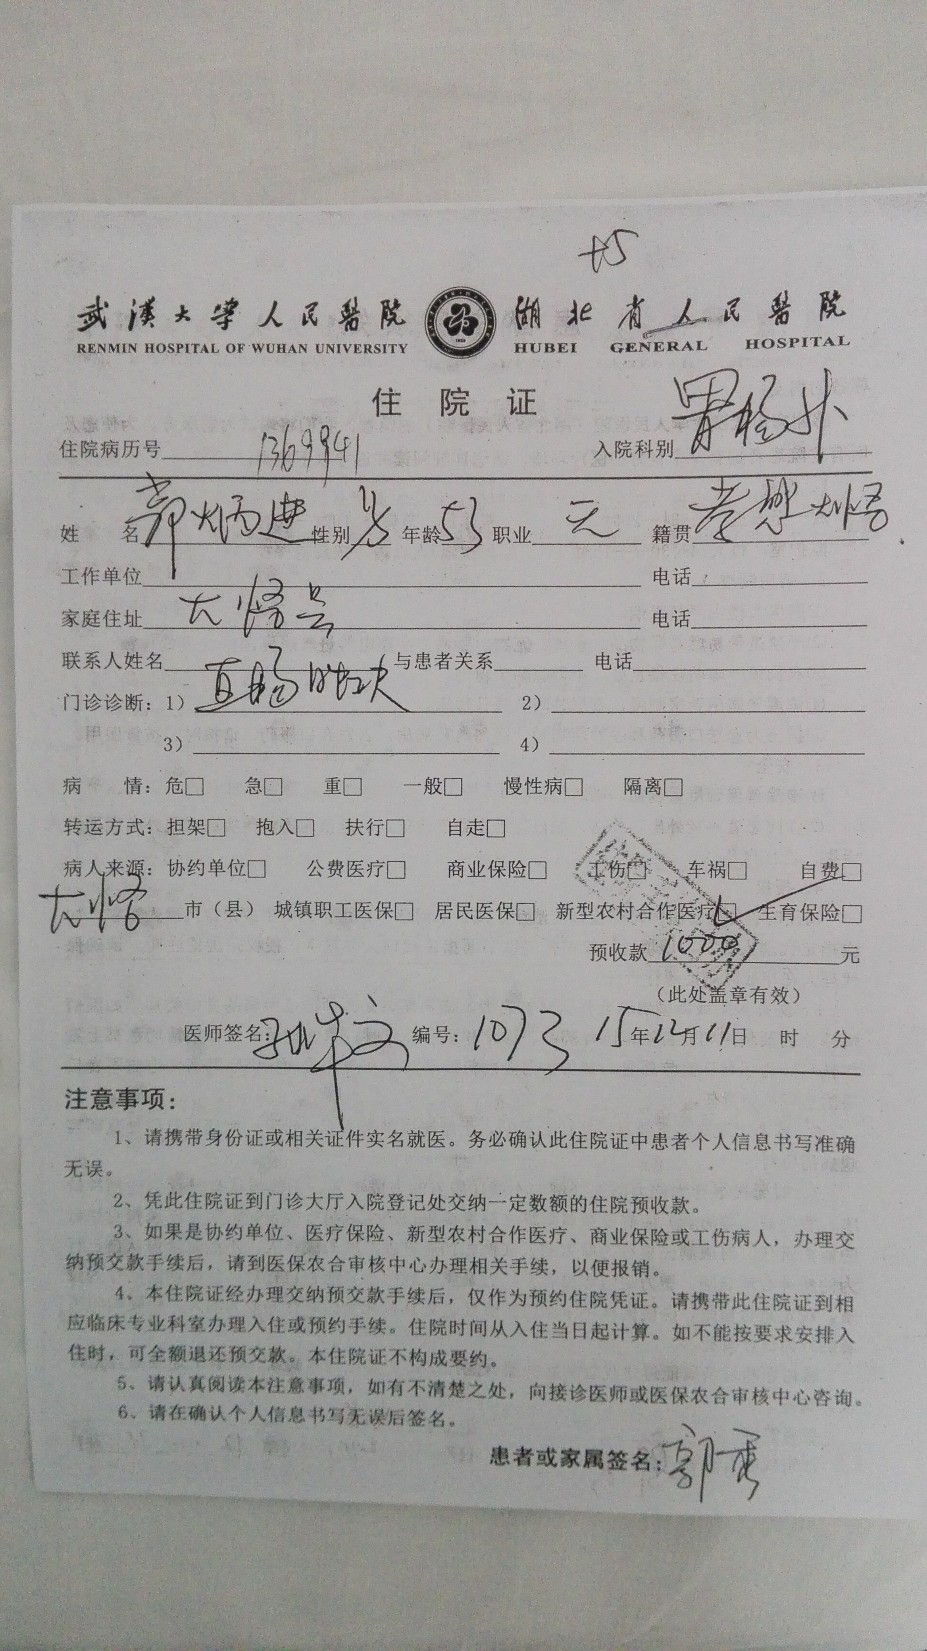 +5
武漢大学人民醫院 湖北省人民醫院
RENMIN HOSPITAL OF WUHAN UNIVERSITY HUBEI GENERAL HOSPITAL
住院证
住院病历号 1369941 入院科别 胃肠外
姓 名 郭炳进 性别 男 年龄 53 职业 无 籍贯 孝感大悟
工作单位 电话
家庭住址 大悟县 电话
联系人姓名 与患者关系 电话
门诊诊断:1) 直肠 2)
3) 4)
病 情:危□ 急□ 重□ 一般□ 慢性病□ 隔离□
转运方式:担架□ 抱入□ 扶行□ 自走□
病人来源:协约单位□ 公费医疗□ 商业保险□ 工伤□ 车祸□ 自费□
大悟 市(县) 城镇职工医保□ 居民医保□ 新型农村合作医疗☑ 生育保险□
预收款 1000 元
(此处盖章有效)
医师签名: 编号:1073 15年12月11日 时 分
注意事项:
1、请携带身份证或相关证件实名就医。务必确认此住院证中患者个人信息书写准确
无误。
2、凭此住院证到门诊大厅入院登记处交纳一定数额的住院预收款。
3、如果是协约单位、医疗保险、新型农村合作医疗、商业保险或工伤病人,办理交
纳预交款手续后,请到医保农合审核中心办理相关手续,以便报销。
4、本住院证经办理交纳预交款手续后,仅作为预约住院凭证。请携带此住院证到相
应临床专业科室办理入住或预约手续。住院时间从入住当日起计算。如不能按要求安排入
住时,可全额退还预交款。本住院证不构成要约。
5、请认真阅读本注意事项,如有不清楚之处,向接诊医师或医保农合审核中心咨询。
6、请在确认个人信息书写无误后签名。
患者或家属签名:郭秀